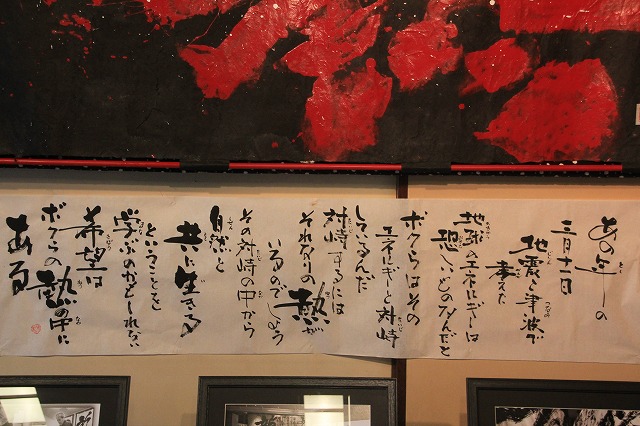 あの年の
三月十一日
地震と津波で
考えた
地球のエネルギーは
恐しいものなんだと
ボクらはその
エネルギーと対峙
しているんだ
対峙するには
それなりの熱が
いるのでしょう
その対峙の中から
自然と
共に生きる
ということを
学ぶのかもしれない
希望は
ボクらの熱の中に
ある